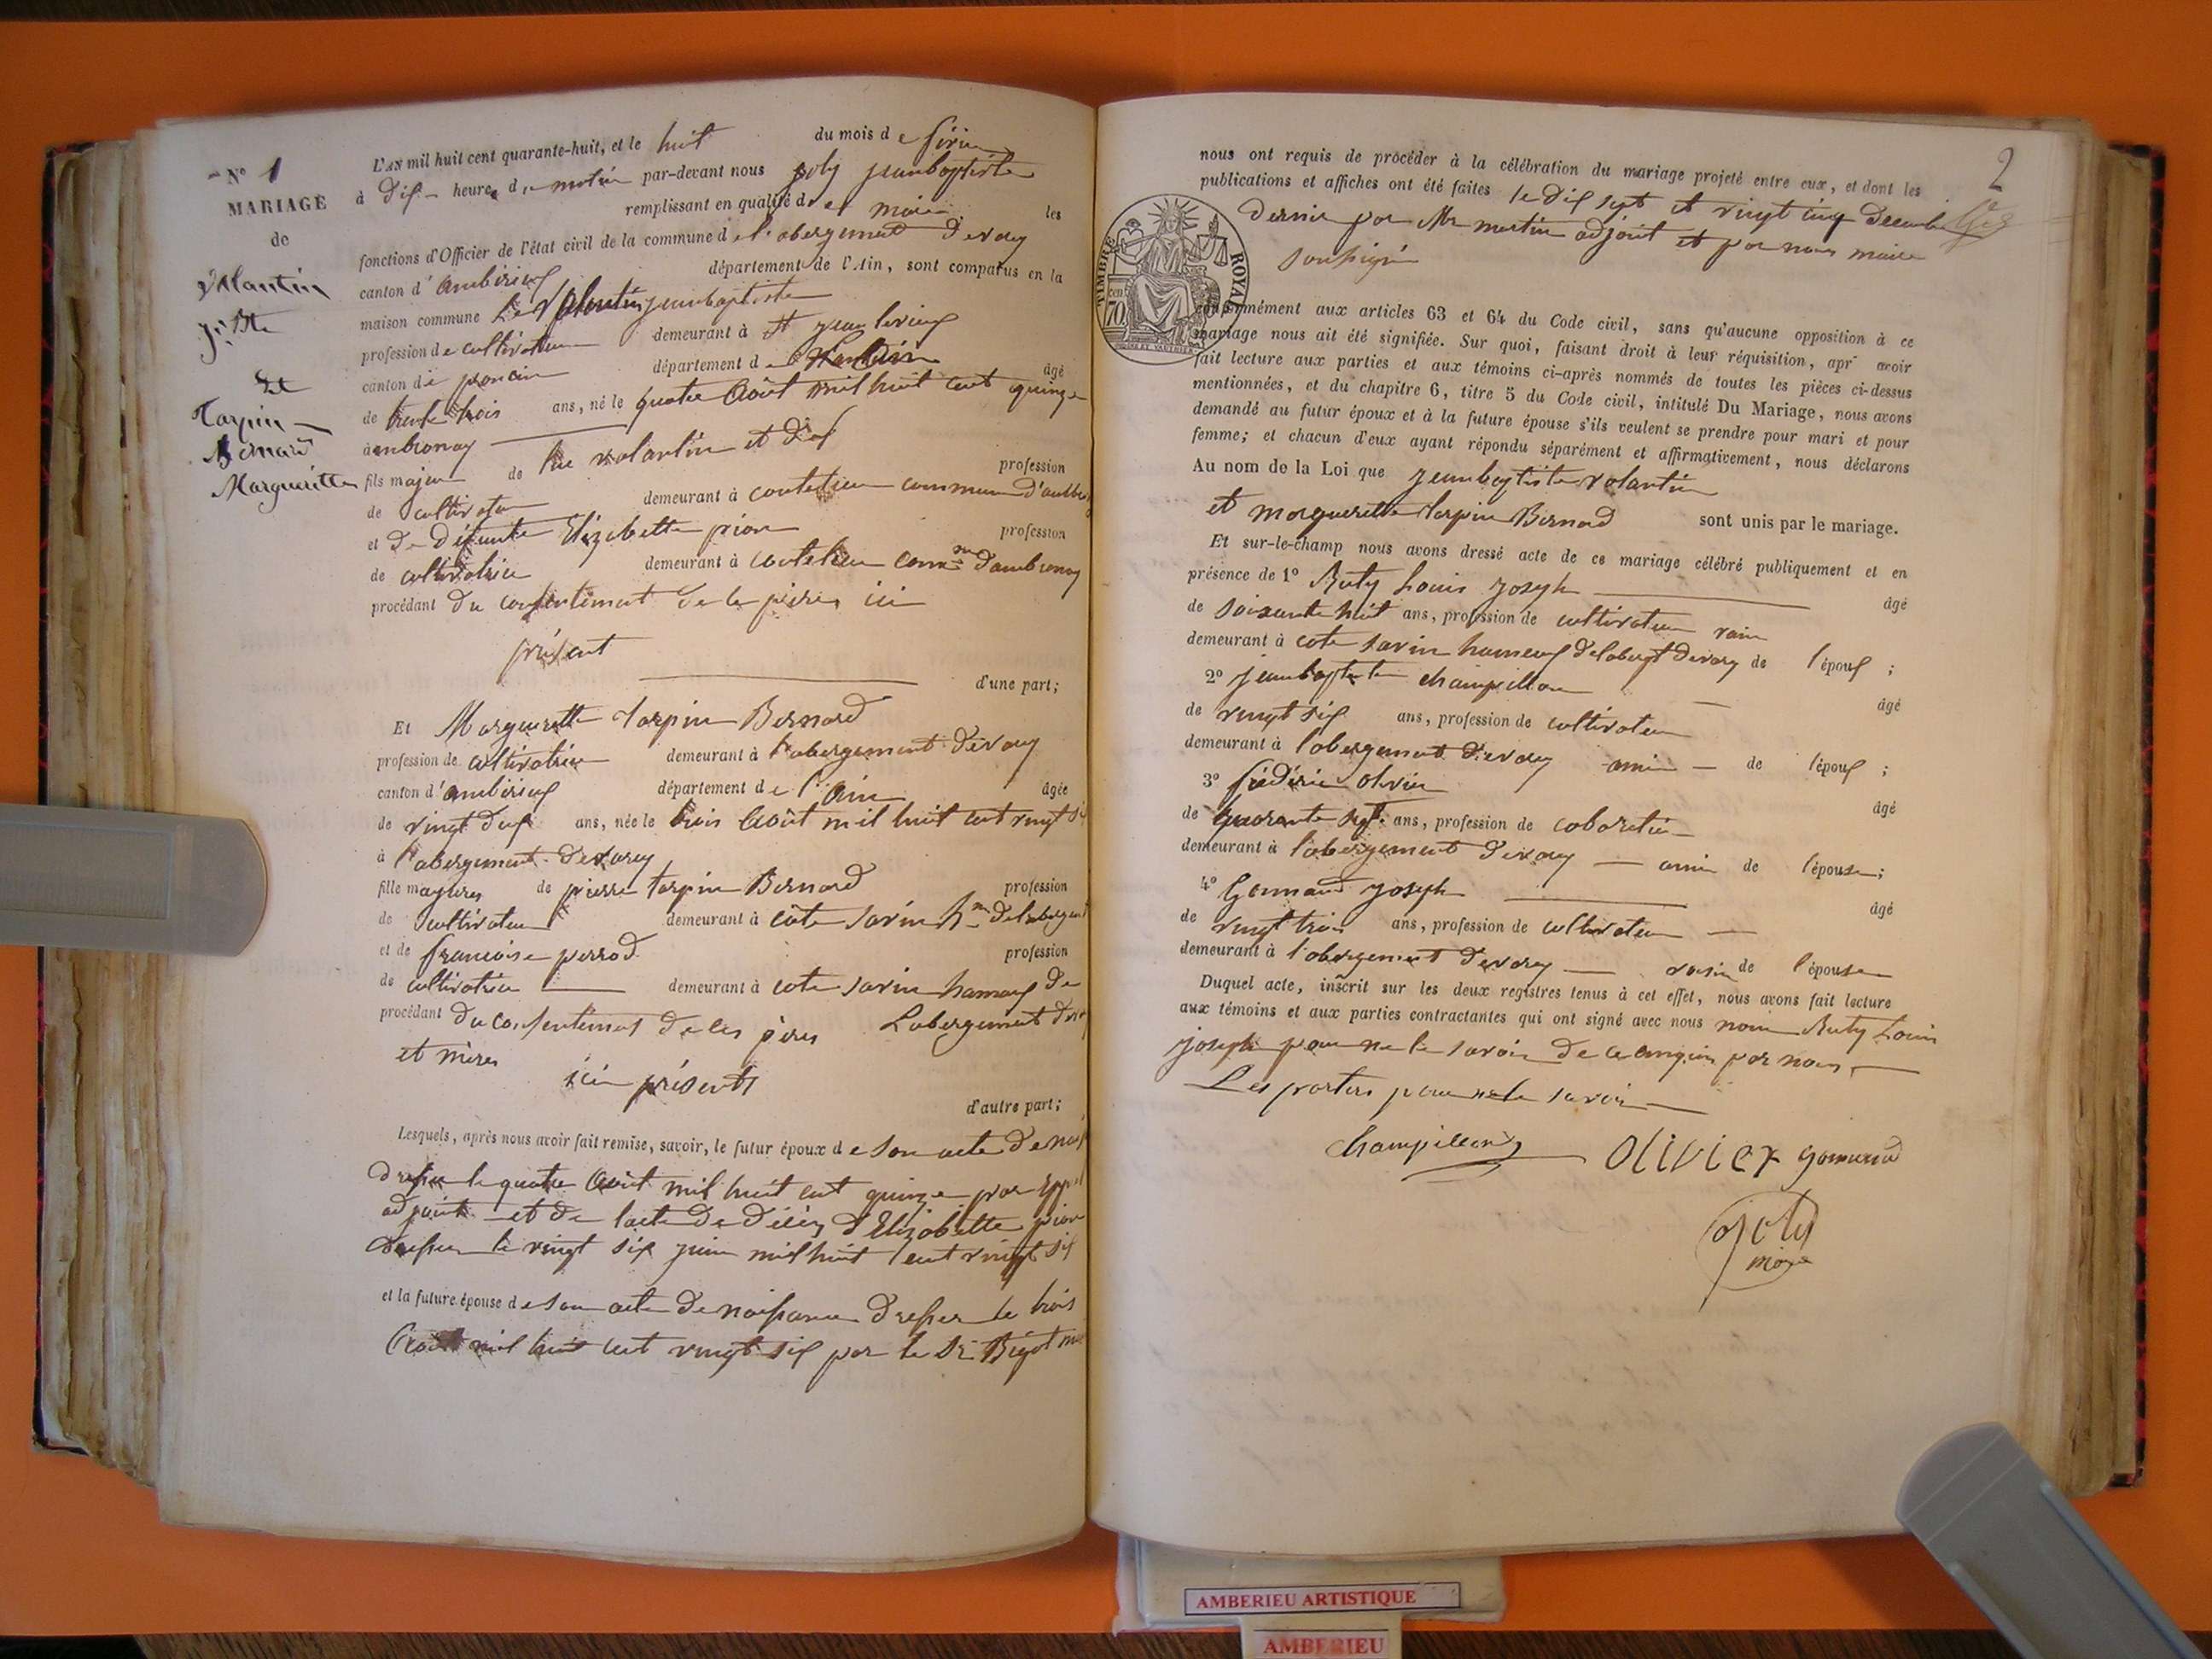 N° 1
MARIAGE
de
Volantin
Jn Bte
Et
Tarpin
Bernard
Margueritte
L'AN mil huit cent quarante-huit, et le huit du mois de
à dix heures du matin par-devant nous Joly jeanbaptiste
remplissant en qualité de maire les
fonctions d'Officier de l'état civil de la commune de l'abergement devarey
canton d'ambérieux département de l'Ain, sont comparus en la
maison commune Le Volantin jeanbaptiste
profession de cultivateur demeurant à St jean levieux
canton de poncin département de l'ain âgé
de trente trois ans, né le quatre Août mil huit cent quinze
à ambronay
fils majeur de volantin et
profession
de cultivateur demeurant à coutelieu commune d'ambro
et De défunte Elizabette pion profession
de cultivatrice demeurant à coutelieu comne d'ambronay
procédant du consentement de le père ici
présent
d'une part;
Et Marguerette tarpin Bernard
profession de cultivatrice demeurant à l'abergement devarey
canton d'ambérieux département de l'Ain âgée
de vingt deux ans, née le trois Août mil huit cent vingt si
à l'abergement devarey
fille mageures de pierre tarpin Bernard profession
de cultivateur demeurant à côte savin hm delabergent
et de francoise perrod profession
de cultivatrice demeurant à cote savin hamaux de
procédant du consentement de les pères Labergement
et mères
ici présents
d'autre part;
Lesquels, après nous avoir fait remise, savoir, le futur époux de son acte de nais
dresser le quatre Août mil huit cent quinze par
adjoint et de lacte de décès d'Elizabette pion
dresser le vingt six juin mil huit cent vingt six
et la future épouse de son acte de naissance dresser le trois
Août mil huit cent vingt six par le Sr Bigot
2
nous ont requis de procéder à la célébration du mariage projeté entre eux, et dont les
publications et affiches ont été faites le dix sept et vingt cinq decembre
dernier par Mr martin adjoint et par nous maire
soussigné
TIMBRE ROYAL
cent
70
conformément aux articles 63 et 64 du Code civil, sans qu'aucune opposition à ce
mariage nous ait été signifiée. Sur quoi, faisant droit à leur réquisition, apr avoir
fait lecture aux parties et aux témoins ci-après nommés de toutes les pièces ci-dessus
mentionnées, et du chapitre 6, titre 5 du Code civil, intitulé Du Mariage, nous avons
demandé au futur époux et à la future épouse s'ils veulent se prendre pour mari et pour
femme; et chacun d'eux ayant répondu séparément et affirmativement, nous déclarons
Au nom de la Loi que jeanbaptiste volantin
et marguerette tarpin Bernard sont unis par le mariage.
Et sur-le-champ nous avons dressé acte de ce mariage célébré publiquement et en
présence de 1° Ruty Louis joseph âgé
de soixante huit ans, profession de cultivateur
demeurant à cote savin hameux delabergt devarey de l'époux ;
2° jeanbaptiste champillon âgé
de vingt six ans, profession de cultivateur
demeurant à l'abergement devarey ami de l'époux ;
3° frédéric olivier âgé
de quarante sept ans, profession de cabaretier
demeurant à l'abergement devarey ami de l'épouse;
4° Gonnand joseph âgé
de vingt trois ans, profession de cultivateur
demeurant à l'abergement devarey voisin de l'épouse
Duquel acte, inscrit sur les deux registres tenus à cet effet, nous avons fait lecture
aux témoins et aux parties contractantes qui ont signé avec nous non Ruty Louis
joseph pour ne le savoir de ce enquis par nous
Les parties pour ne le savoir
champillon Olivier gonnand
Joly
maire
AMBERIEU ARTISTIQUE
AMBERIEU